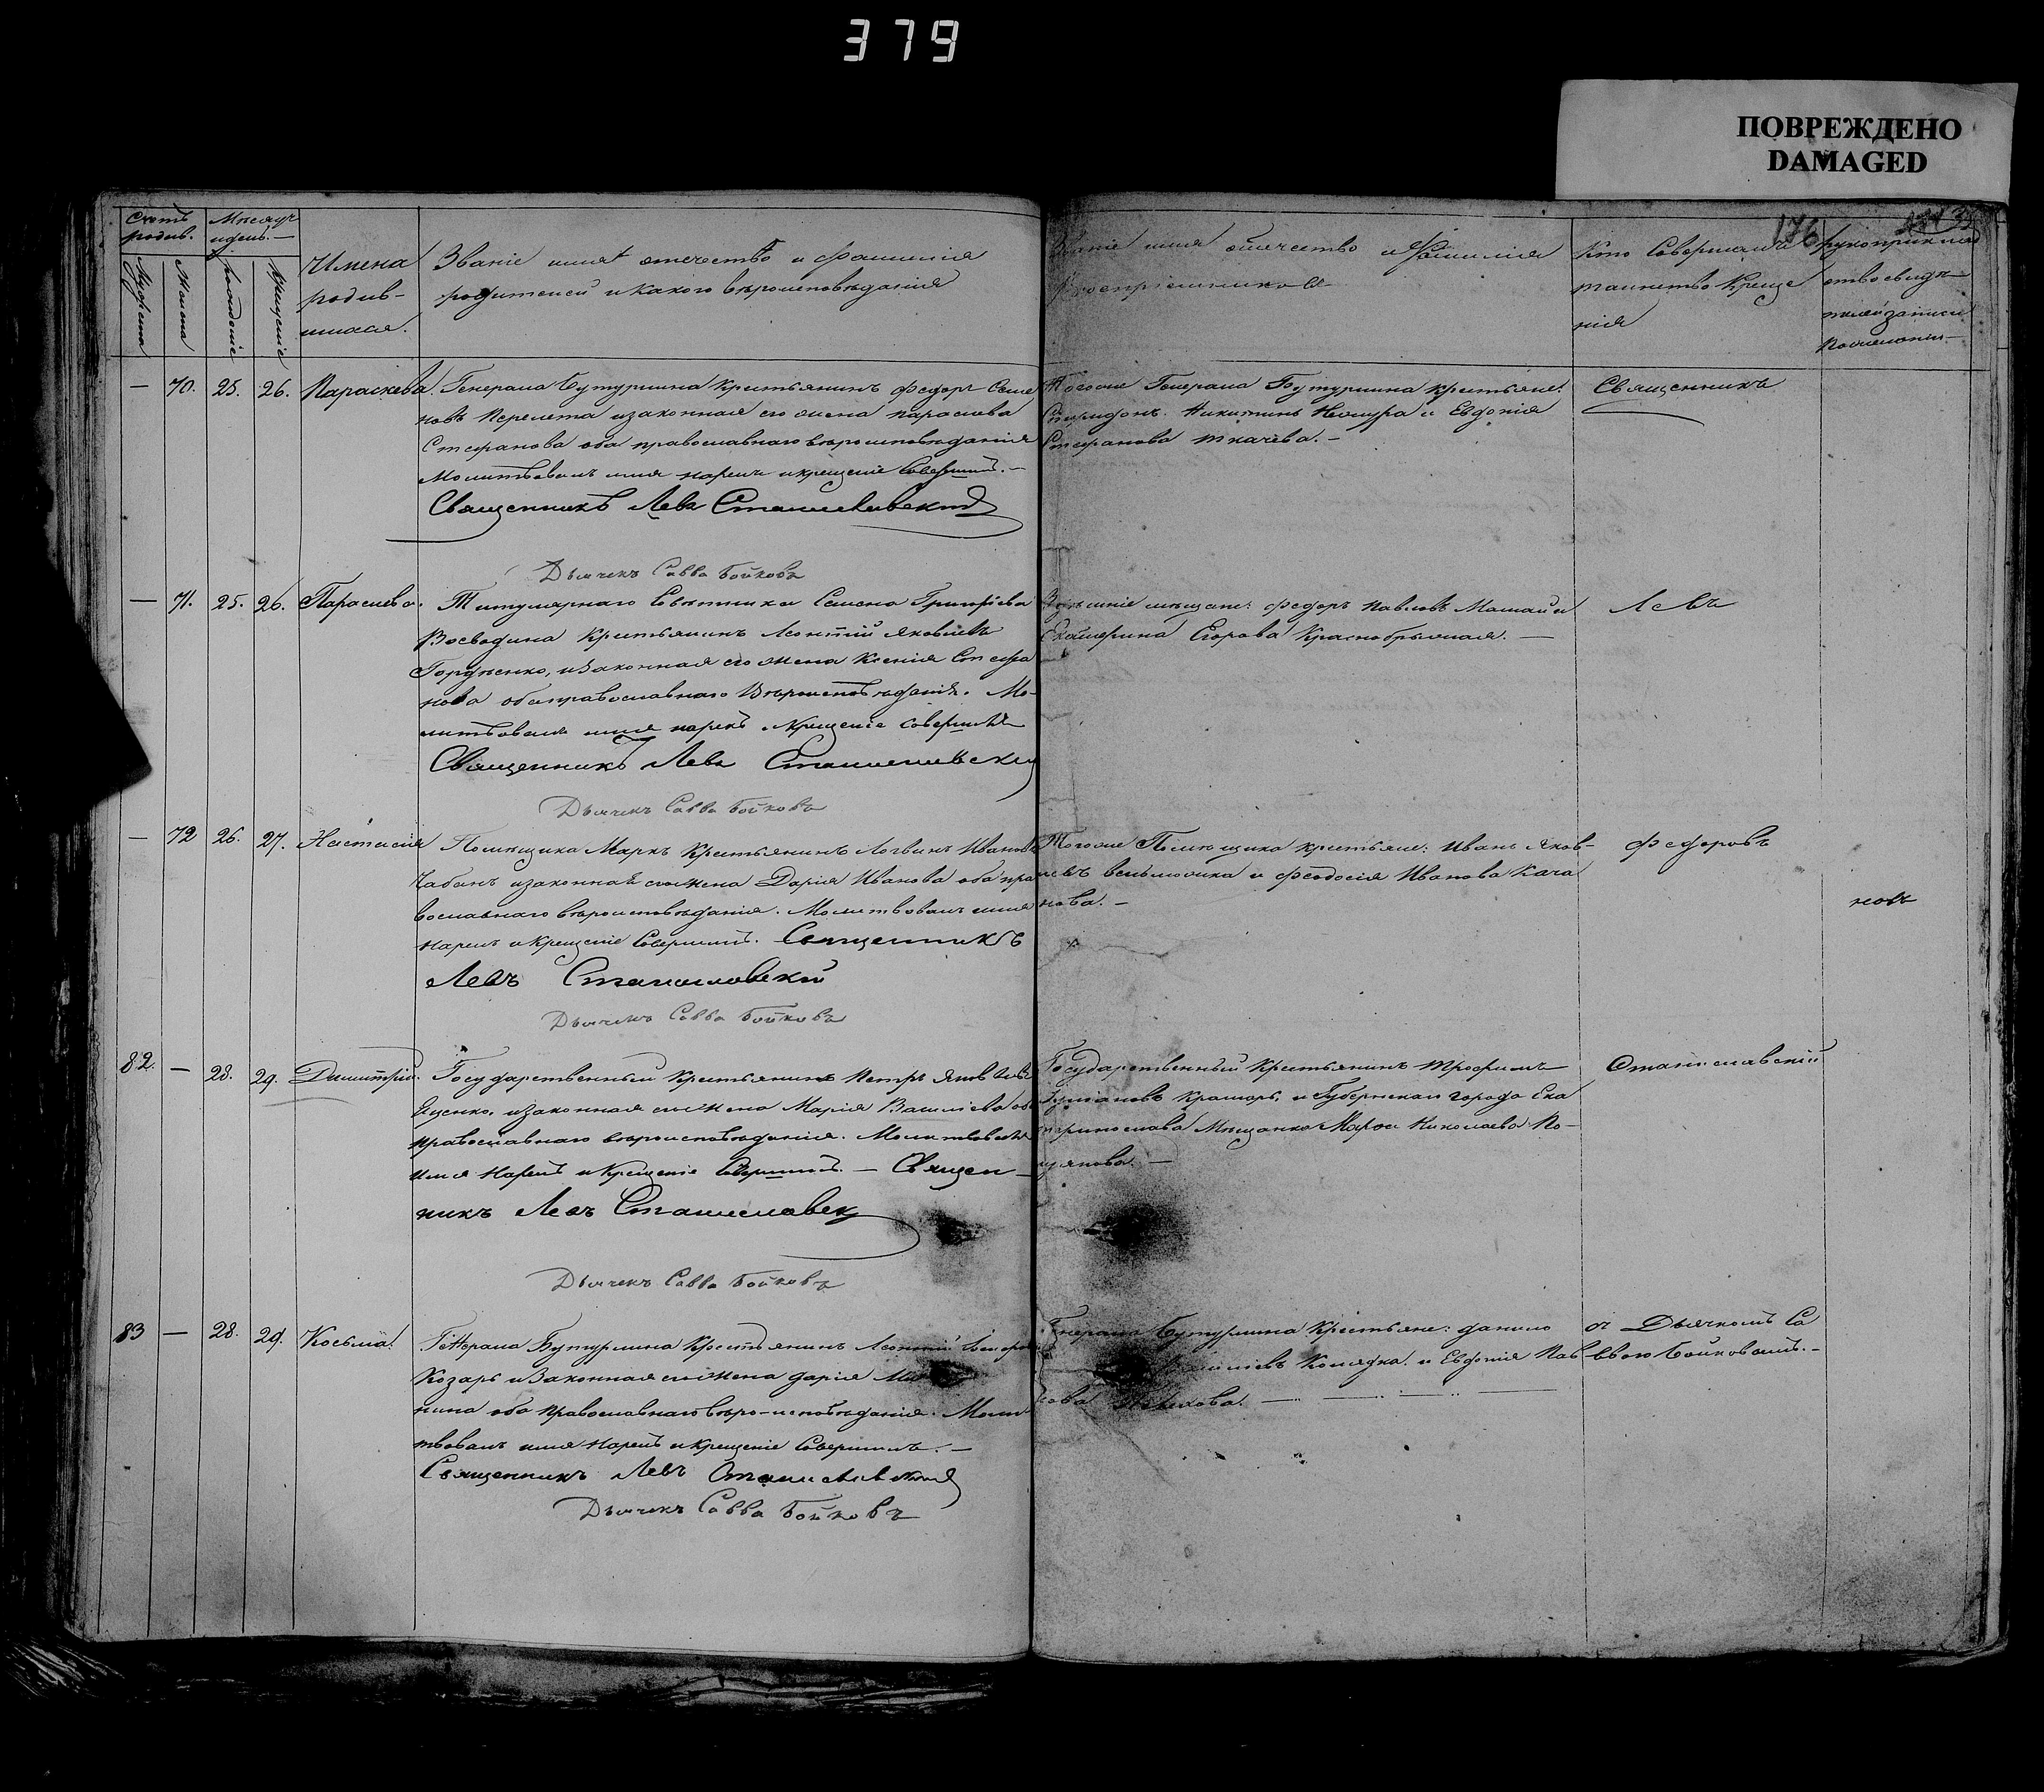 379
ПОВРЕЖДЕНО
DAMAGED
176
Счетъ родив.
Мужеска
Женска
Мѣсяцъ и день.
рожденіе
крещеніе
Имена
родив-
шихся.
Званіе имя отечество и фамилія
родителей и какого вѣроисповѣданія
Званіе имя отечество и Фамилія
Воспріемниковъ
Кто Совершалъ
таинство Креще
нія
рукоприклад
ство свидѣ
телей записи
— 70. 25. 26. Параскева.
Генерала Бутурлина крестьянинъ Федоръ Семе
новъ Перелета и законная его жена параскева
Стефанова оба православнаго вѣроисповѣданія
Молитвовалъ имя нарекъ и крещеніе Совершилъ. —
Священникъ Левъ Станиславскій
Дьячекъ Савва Бойковъ
Тогоже Генерала Бутурлина крестьяне:
Спиридонъ Никитинъ и Евдокія
Стефанова ткачева. —
Священникъ
— 71. 25. 26. Параскева.
Титулярнаго Совѣтника Семена Григорьева
Воеводина Крестьянинъ Леонтій Яковлевъ
Гордѣенко, и Законная его жена Ксенія Стефа
нова оба православнаго Вѣроисповѣданія. Мо-
литвовалъ имя нарекъ и Крещеніе совершилъ
Священникъ Левъ Станиславскій
Дьячекъ Савва Бойковъ
мѣщане: Федоръ Павловъ и
Екатерина Егорова Краснобрыжая. —
Левъ
— 72 26. 27. Настасія
Помѣщика Маркъ Крестьянинъ Логвинъ Ивановъ
Чабанъ и законная его жена Дарія Иванова оба пра
вославнаго вѣроисповѣданія. Молитвовалъ имя
нарекъ и Крещеніе Совершилъ. Священникъ
Левъ Станиславскій
Дьячекъ Савва Бойковъ
Тогоже Помѣщика крестьяне: Иванъ Яков-
левъ и Феодосія Иванова Кача
нова. —
Федоровъ
новъ
82. — 28. 29. Димитрій.
Государственный Крестьянинъ Петръ Яковлевъ
Яценко, и законная его жена Марія Василіева оба
православнаго вѣроисповѣданія. Молитвовалъ
имя Нарекъ и Крещеніе Совершилъ. — Священ-
никъ Левъ Станиславск
Дьячекъ Савва Бойковъ
Государственный Крестьянинъ Трофимъ
Крамарь, и Губернскаго города Ека
теринослава Мѣщанка Марфа Николаева По-
Станиславскій
83 — 28. 29. Косьма.
Генерала Бутурлина Крестьянинъ Леонтій
Козарь и Законная его жена дарія
нина оба православнаго вѣро-исповѣданія. Моли-
твовалъ имя Нарекъ и крещеніе Совершилъ. —
Священникъ Левъ Станиславскій
Дьячекъ Савва Бойковъ
Генерала Бутурлина Крестьяне: данило
Василіевъ Колядка. и Евдокія Пав
лова
съ Дьячкомъ Са
ввою Бойковымъ. —